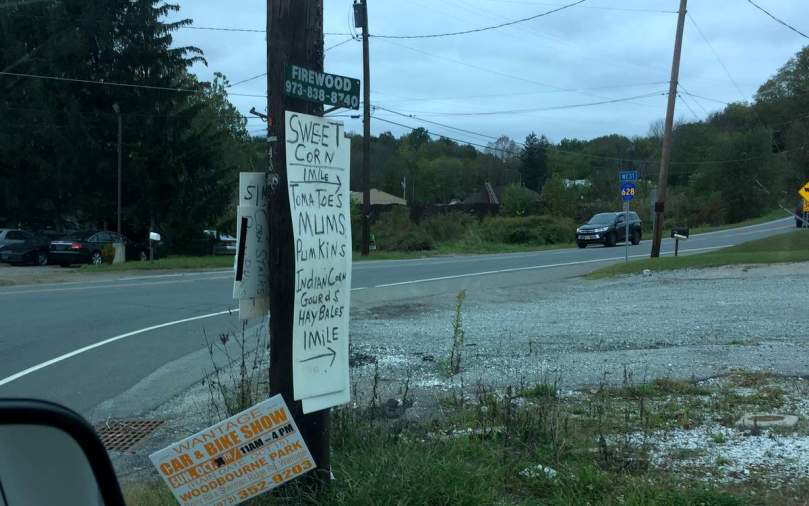 FIREWOOD
973-838-8740
SWEET
CORN
1 MILE
TOMATOES
MUMS
PUMKINS
INDIAN CORN
GOURDS
HAY BALES
1 MILE
WEST
628
WANTAGE
CAR & BIKE SHOW
SUN. OCT 11AM - 4 PM
WOODBOURNE PARK
(973) 352-9203